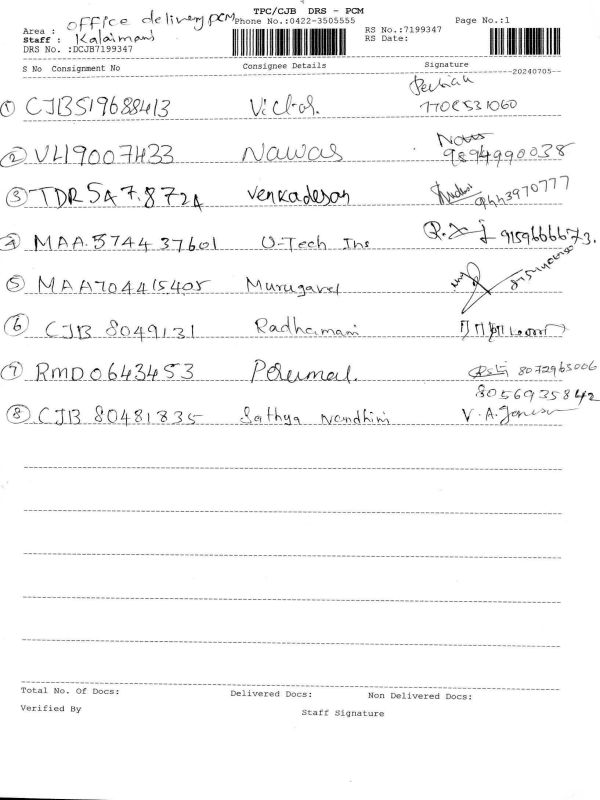 TPC/CJB DRS - PCM
Area : office delivery PCM Phone No.:0422-3505555 RS No.:7199347 Page No.:1
Staff : Kalaimani RS Date:
DRS No. :DCJB7199347
S No Consignment No Consignee Details Signature
20240705
① CJB519688413
② VL19007433 Nawas 9894990038
③ TDR 547.8724 Venkadesan
④ MAA.5744 37601 U-Tech Ins 9159666673.
⑤ MAA704415405 Murugavel
⑥ CJB 8049131 Radhamani
⑦ RMD0643453 Perumal. 8072965006
8056935842
⑧ CJB 80481835 Sathya Nandhini
Total No. Of Docs: Delivered Docs: Non Delivered Docs:
Verified By Staff Signature